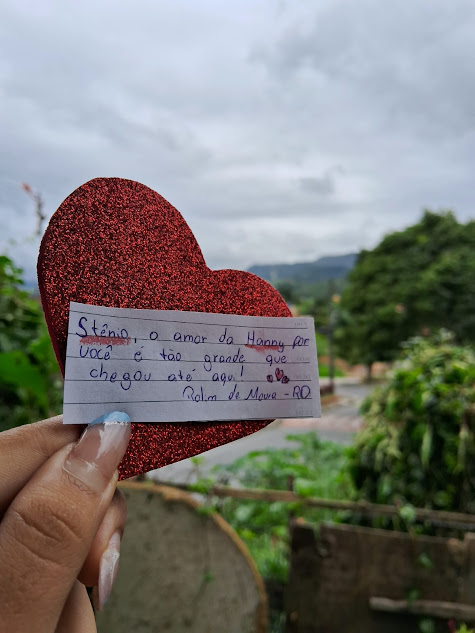 Stênio, o amor da Hanny por
você é tão grande que
chegou até aqui!
Rolm de Moura - RO